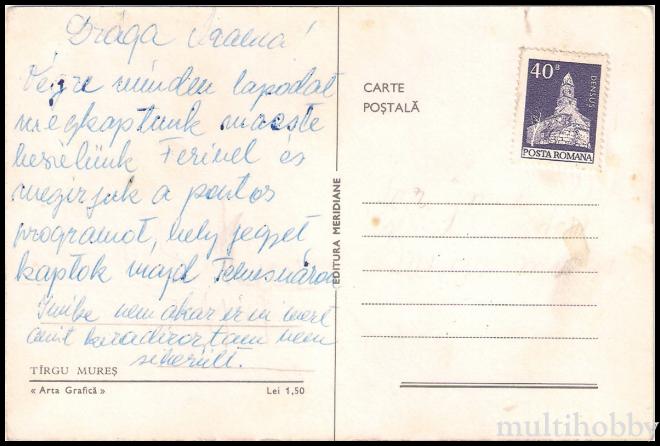 Drága
Végre minden lapodat
megkaptunk maeste
beszélünk Ferivel és
megirjuk a pontos
programot, hely jegyet
kaptok majd Temesváron
nem akar ír ni mert
amit nem
sikerült.
TÎRGU MUREȘ
« Arta Grafică »
Lei 1,50
EDITURA MERIDIANE
CARTE
POȘTALĂ
40 B
DENSUȘ
POSTA ROMANA
multihobby